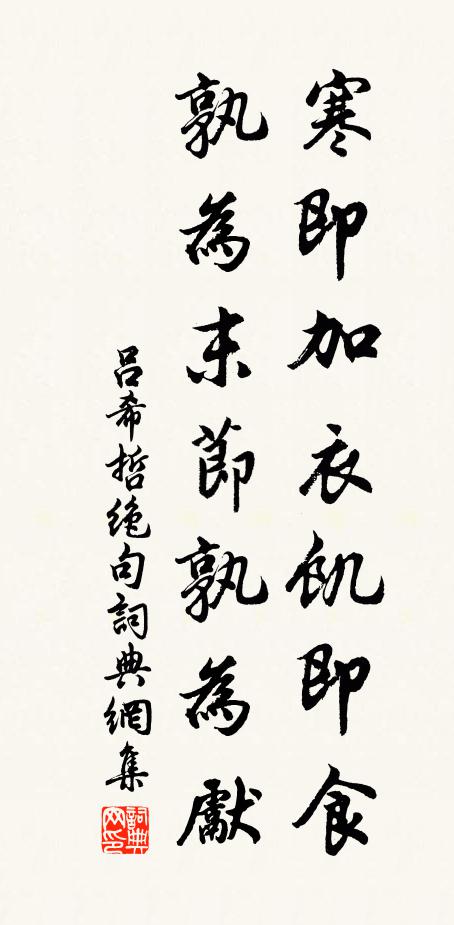 寒即加衣飢即食
孰為末節孰為獻
呂希哲絕句詞典網集
詞典网印